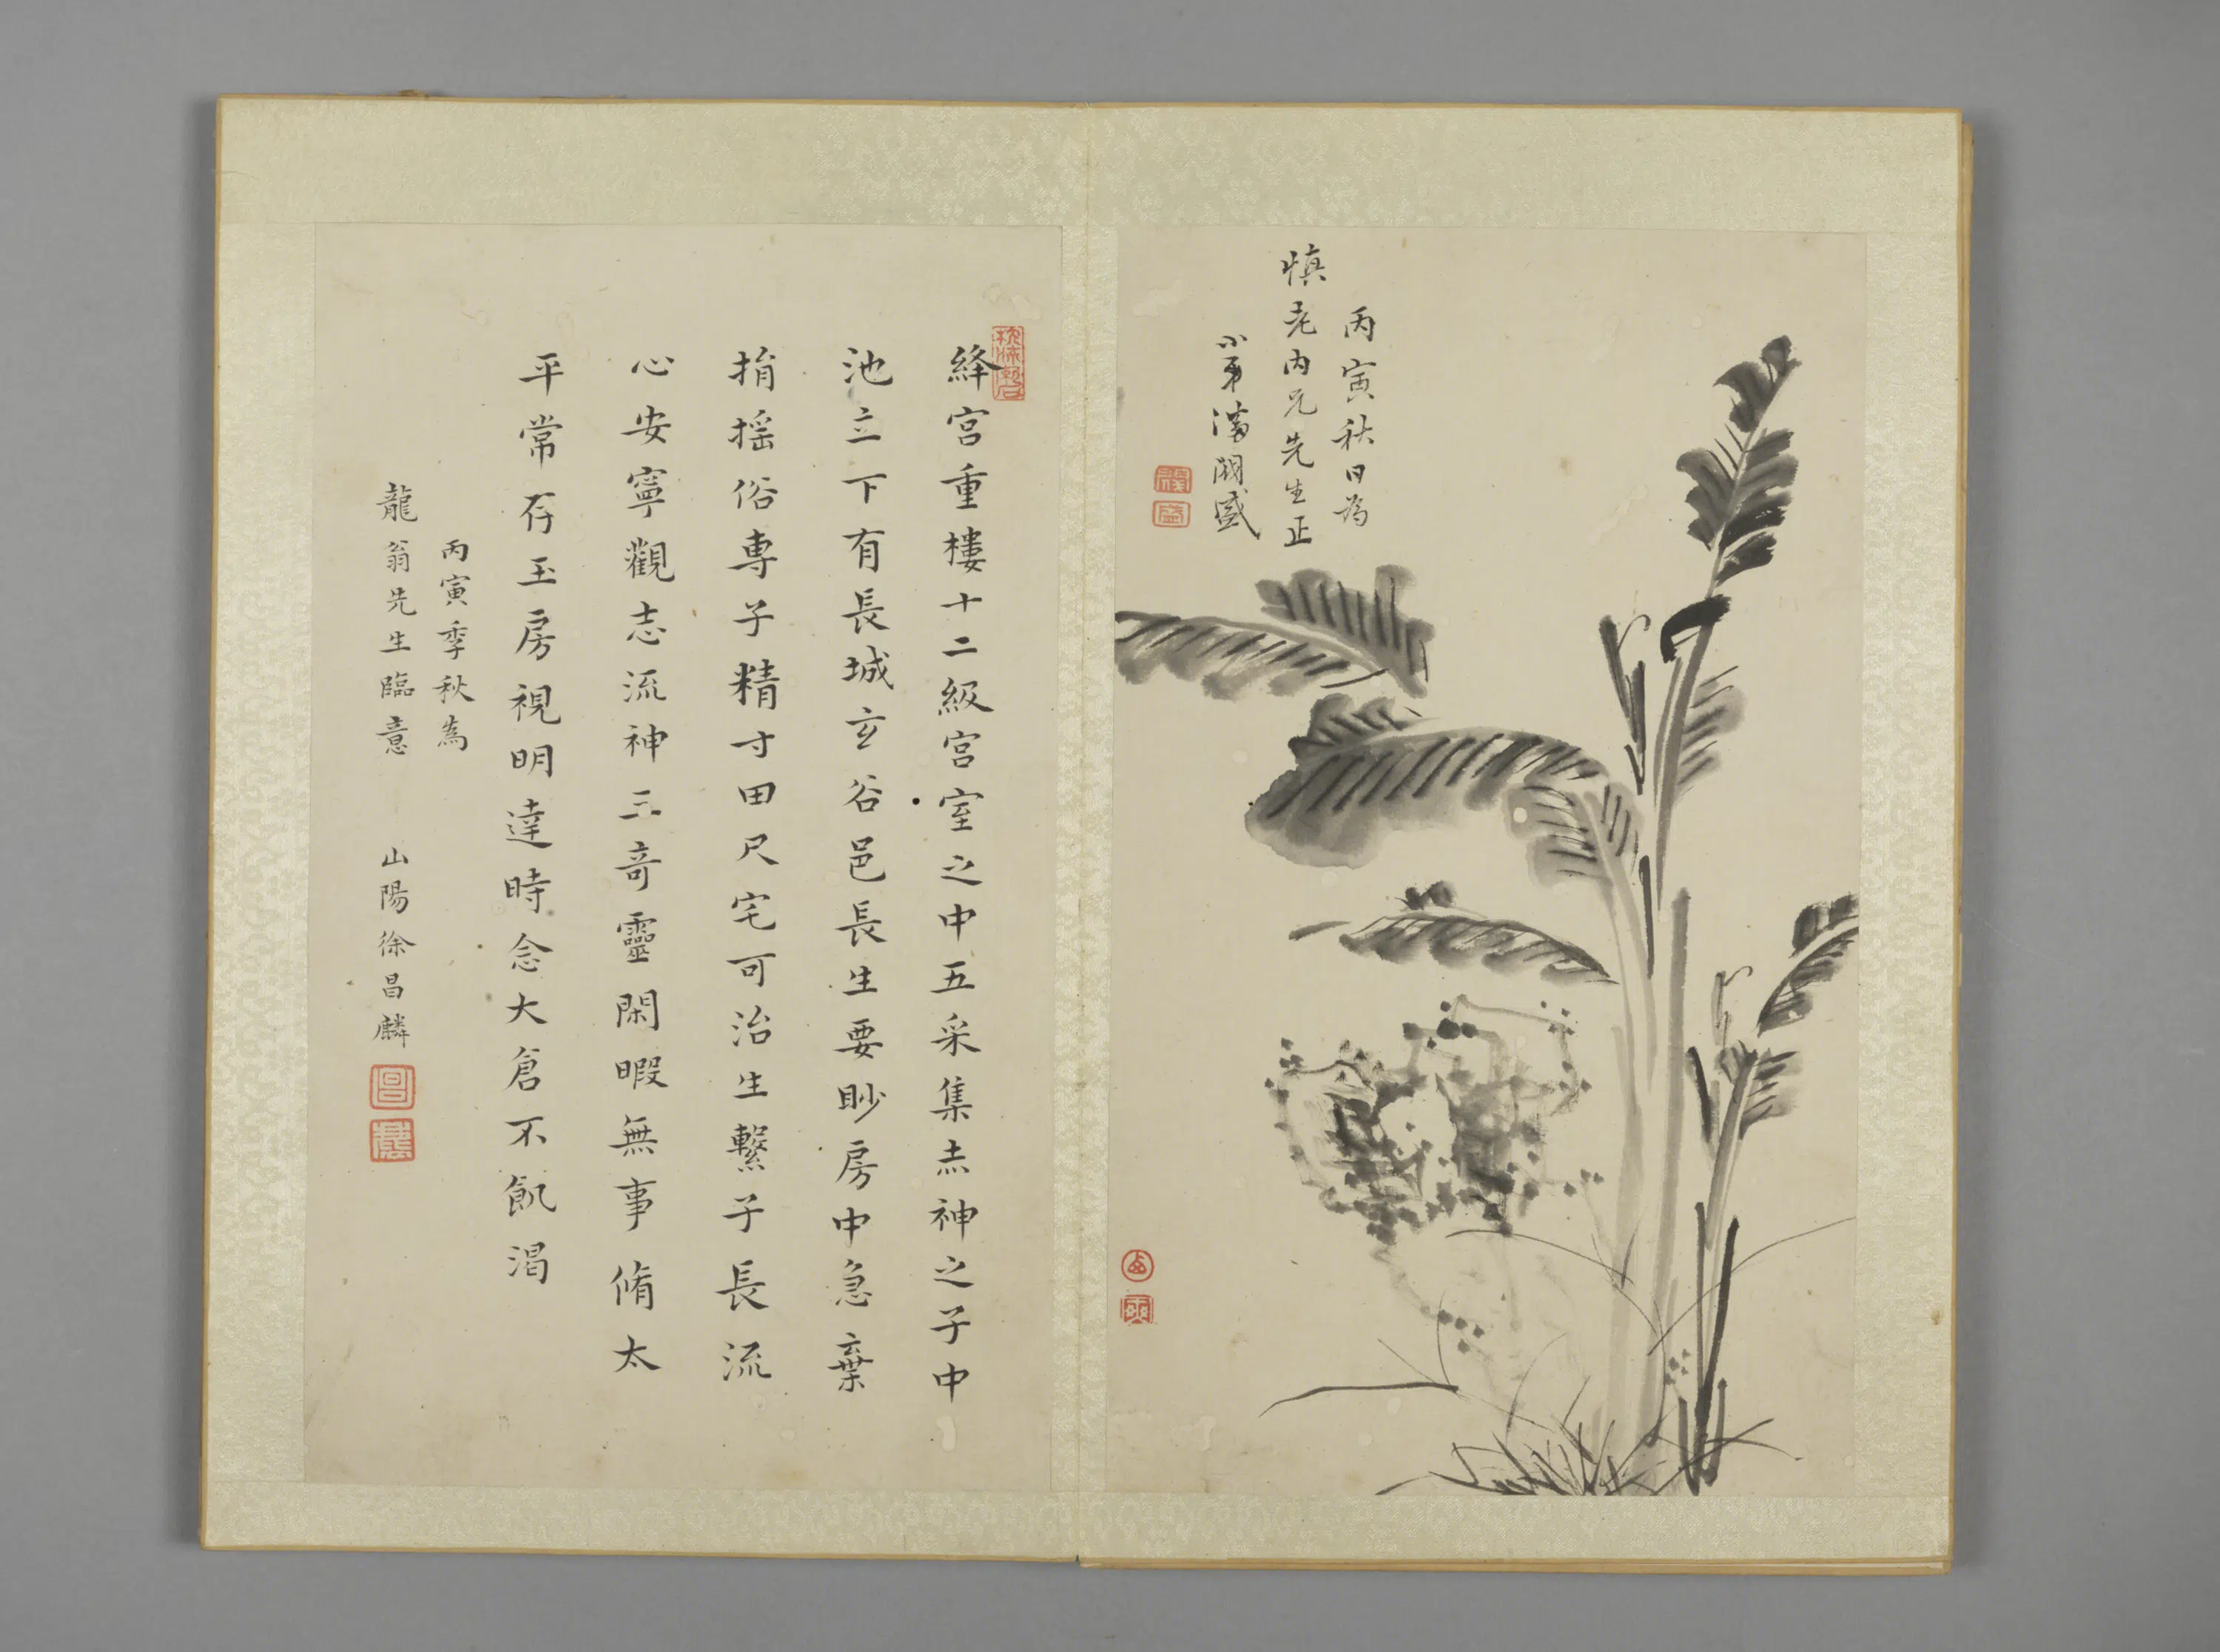 丙寅秋日为
慎老内兄先生正
小弟 盛
絳宫重樓十二級宫室之中五采集赤神之子中
池立下有長城玄谷邑長生要眇房中急棄
捐搖俗専子精寸田尺宅可治生繫子長流
心安寧觀志流神三奇靈閑暇無事脩太
平常存玉房視明達時念大倉不飢渴
丙寅季秋為
龍翁先生臨意 山陽徐昌麟